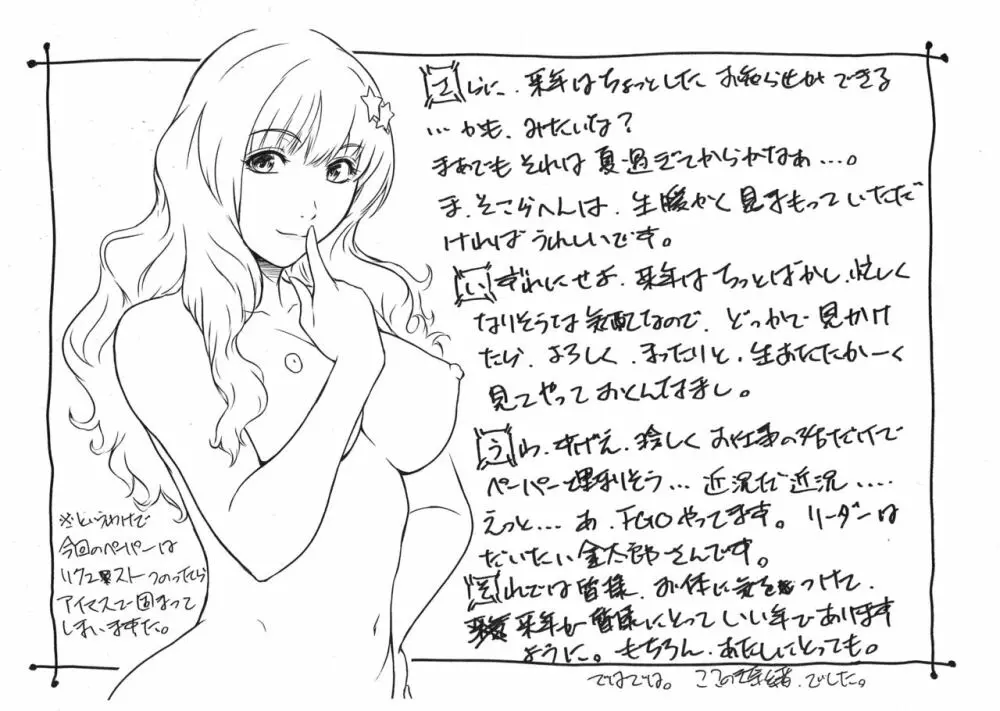 さらに、来年はちょっとした お知らせができる
…かも、みたいな?
まあでも それは 夏過ぎてからかなぁ…。
ま、そこらへんは、生暖かく見まもっていただだ
ければ うれしいです。
いずれにせよ、来年は ちっとばかし、忙しく
なりそうな気配なので、どっかで見かけ
たら、よろしく、まったりと、生あたたかーく
見てやって おくんなまし。
うわ、すげえ、珍しく お仕事の話だけで
ペーパー埋まりそう… 近況だ近況.....
えっと… あ、FGOやってます。リーダーは
だいたい 金太郎さんです。
それでは皆様、お体に気をつけて、
来年が皆様にとって いい年でありますように。もちろん、あたしにとっても。
ではでは。ここのき奈緒、でした。
※というわけで
今回のペーパーは
リクエストつのったら
アイマスで固まって
しまいました。